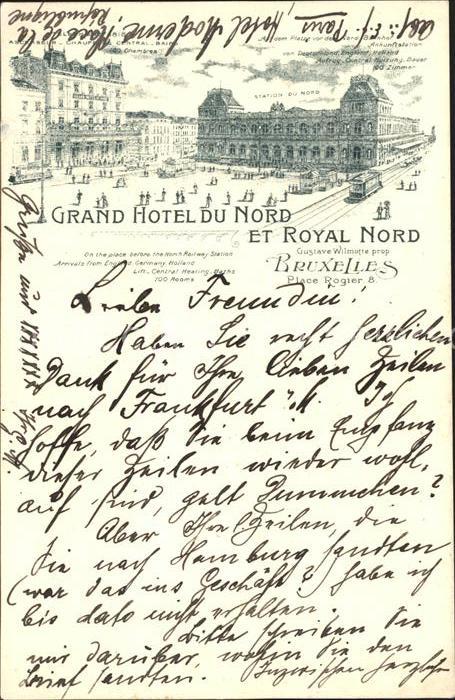 Paris, Hotel Moderne, Place de la
République
Chauffage Central, Bains
Auf dem Platze vor dem Nord Bahnhof
Ankunftstation
von Deutschland, England, Holland
Aufzug, Central Heizung, Bäder
100 Zimmer
STATION DU NORD
GRAND HOTEL DU NORD
ET ROYAL NORD
Gustave Wilmotte prop
BRUXELLES
Place Rogier 8.
On the place before the North Railway Station
Arrivals from England, Germany, Holland
Lift, Central Heating, Baths
100 Rooms
Liebe Freundin!
Haben Sie recht herzlichen
Dank für Ihre lieben Zeilen
nach Frankfurt a/M. Ich
hoffe, daß Sie beim Empfang
dieser Zeilen wieder wohl,
auf sind, gelt Dummchen?
Aber Ihre Zeilen, die
Sie nach Hamburg sandten
(war das ins Geschäft?) habe ich
bis dato nicht erhalten.
Bitte schreiben Sie
mir darüber, wohin Sie den
Brief sandten. Inzwischen herzliche
Grüße